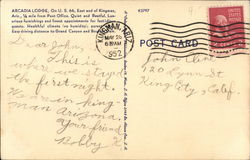 ARCADIA LODGE, On U. S. 66, East end of Kingman,
Ariz., ½ mile from Post Office. Quiet and Restful. Lux-
urious furnishings and finest appointments for
points. Healthful climate (no humidity).
Easy driving distance to Grand Canyon and
K3797
KINGMAN, ARIZ.
MAY 26
AM
1952
POST CARD
Dear John,
This is
where we stayed
the first night.
Kingman Arizona
your friend
Bobby
John Cline
120 Lynn St
King City, Calif.